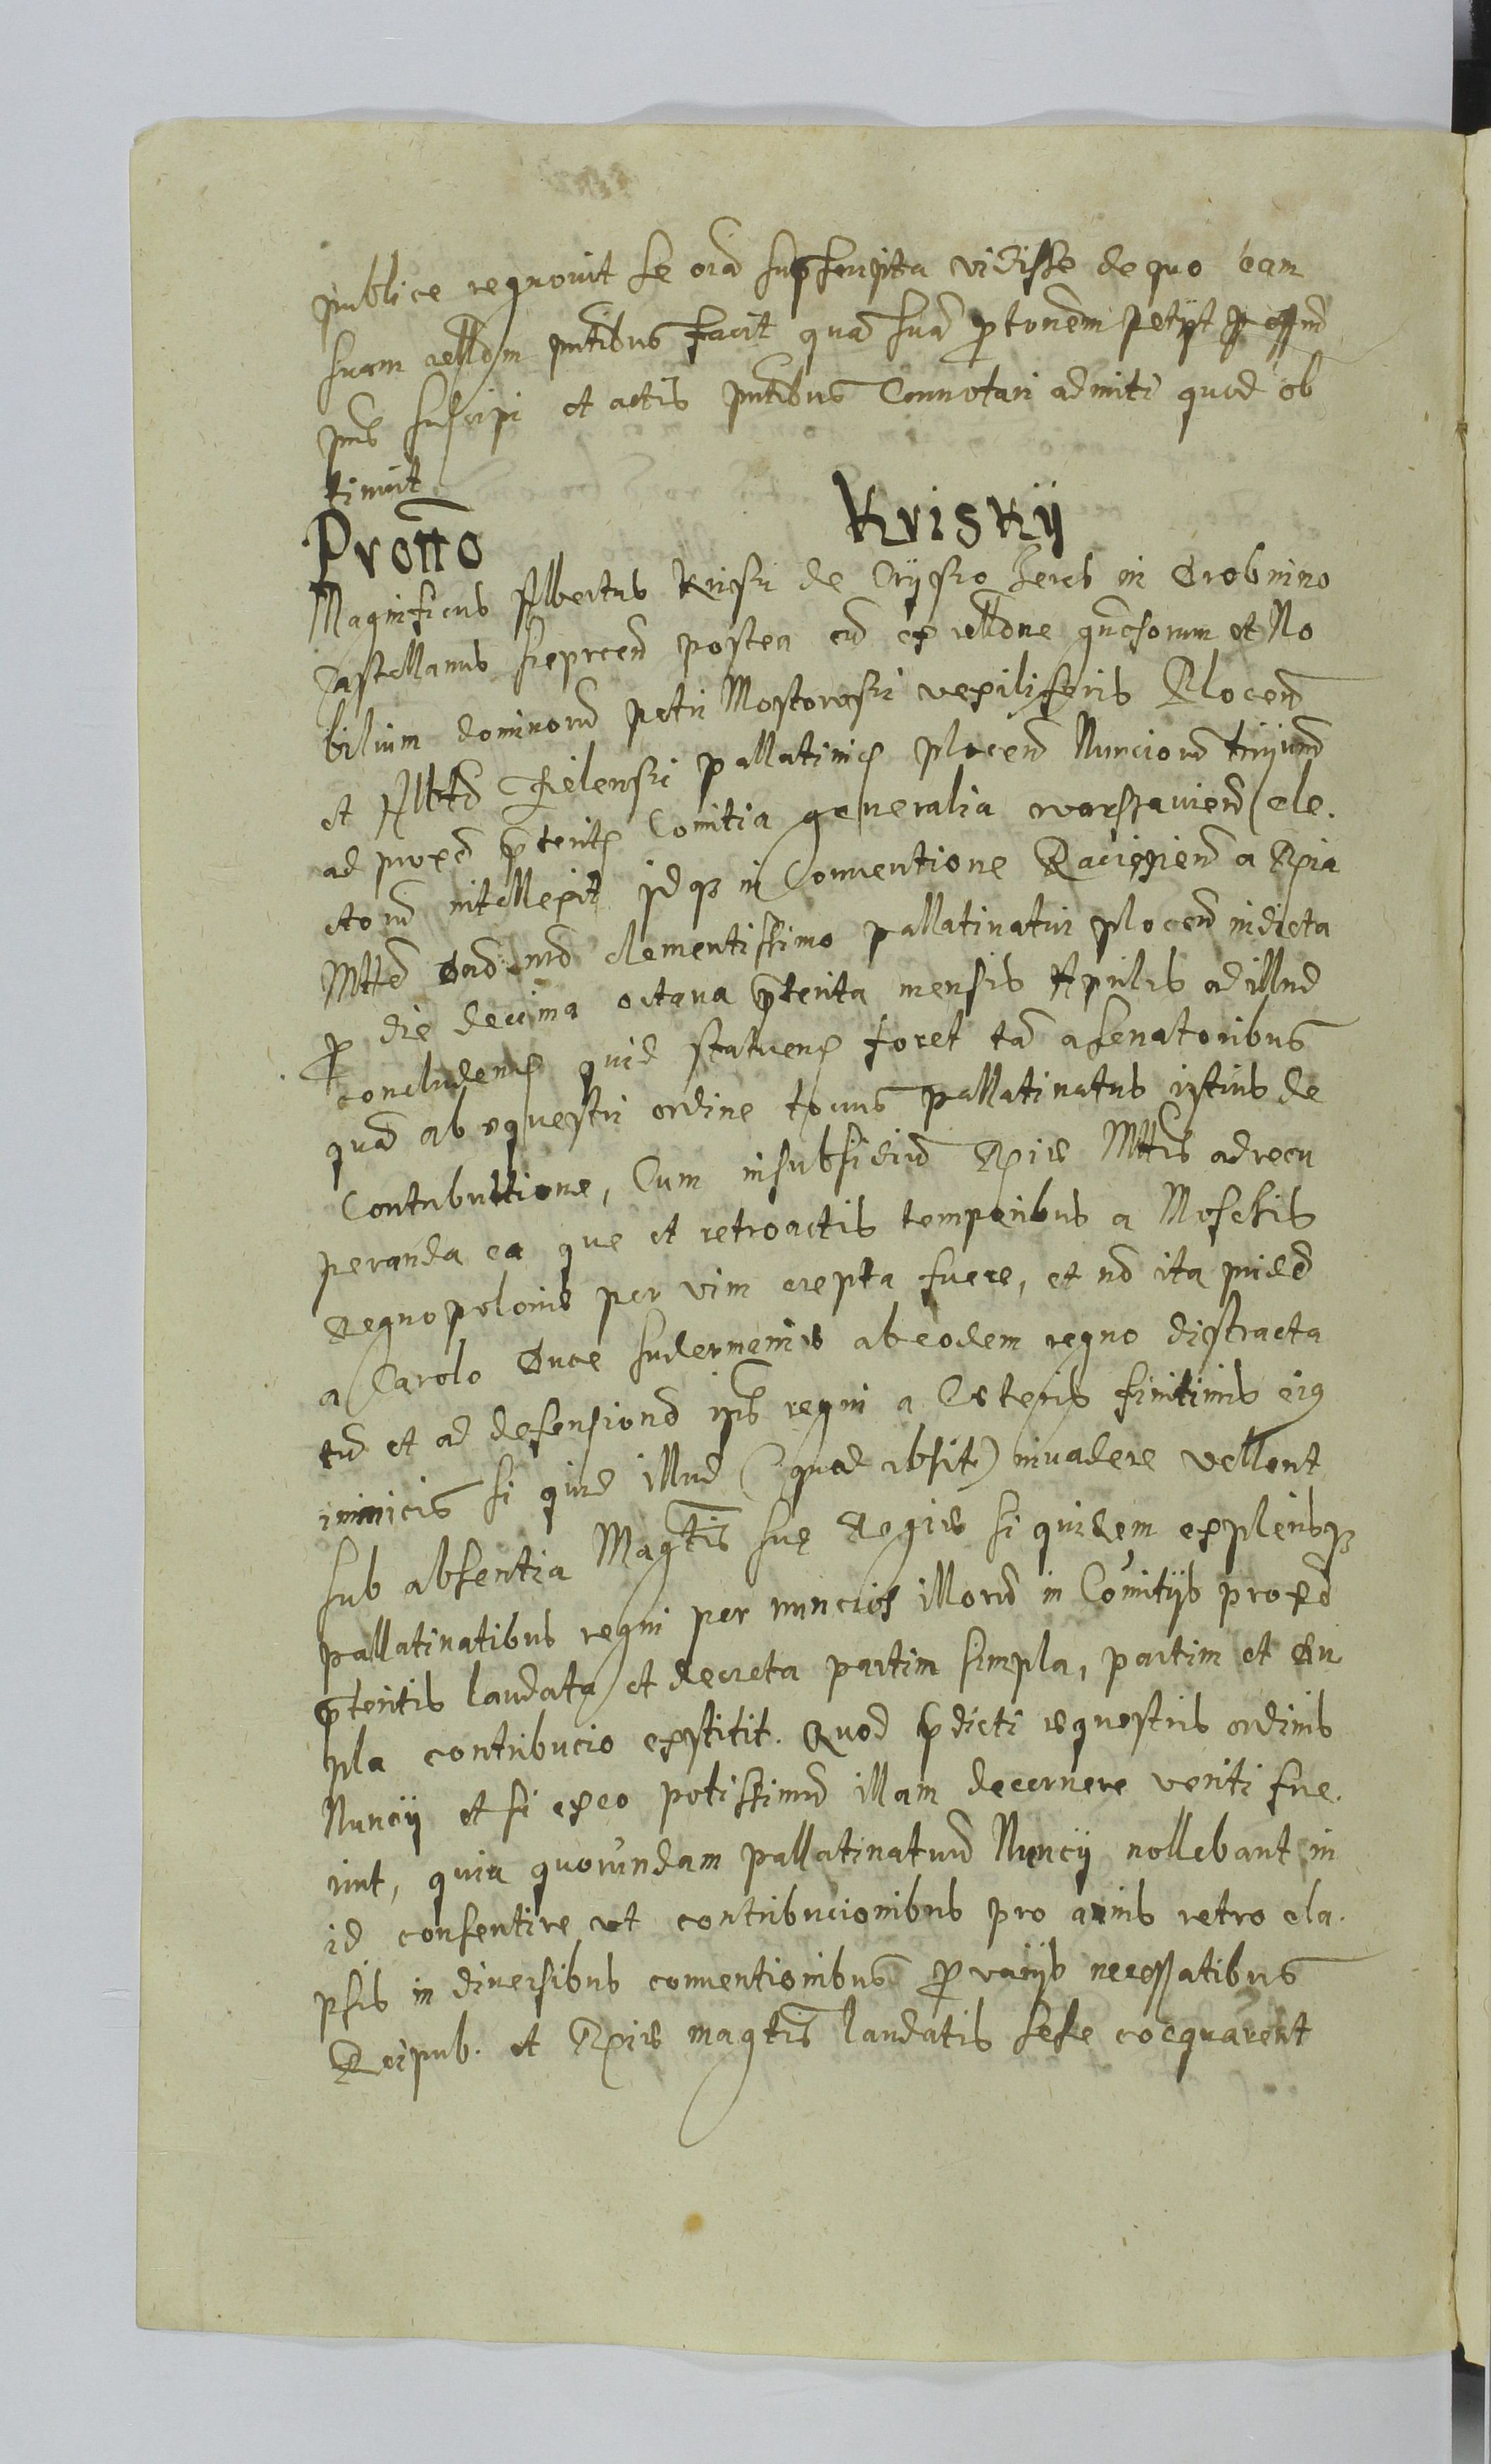 publice regnovit se oia suprscripta vidisse de quo eam
suam rellom pntibus facit qua sua protonem petyt
pns suscipi et actis pntibus Connotari admiti quod ob
tinuit
Protto Kriskÿ
Magnificus Albertus Kriski de Crÿsko heres in Drobnino
Castellanus Sieprcen postea cu ex rellone gnosorum et No
bilium dominoru petri Mostowski vexiliferis Plocen
et Albto Zielenski pallatinid plocen Nunciorum trÿum
ad proxe pterite Comitia generalia warszavien ele.
ctoru intellexit jdqz in Conventione Raciązien a Rgia
Mtte Dno nro clementissimo pallatinatui plocen indicta
pro die decima octava pterita mensis Aprilis ad illud
concludend quid statuend foret ta a senatoribus
qua ab equestri ordine tocius pallatinatus istius de
Contributtione, Cum in subsidiu Rgie Mttis ad recu
peranda ea que et retroactis temporibus a Moschis
Regno polonie per vim erepta fuere, et no ita pride
a Carolo Duce Sudermanie ab eodem regno distracta
tu et ad defensiono ips regni a Ceteris finitimis eiq
inimicis si quid illud (quod absit) invadere vellent
sub absentia Magtis sue Regie si quidem explerisqz
pallatinatibus regni per nuncios illoru in Comitÿs proxe
pteritis laudata et decreta partim simpla, partim et du
pla contribucio exstitit. Quod pdicti equestris ordinis
Nuncÿ et si ex eo potissimu illam decernere veriti fue.
rint, quia quorundam pallatinatuu Nuncÿ nollebant in
id consentire ut contribucionibus pro annis retro ela.
psis in diversibus conventionibus pro varÿs necessatibus
Reipub. et Rgie magtis laudatis sese coequarent